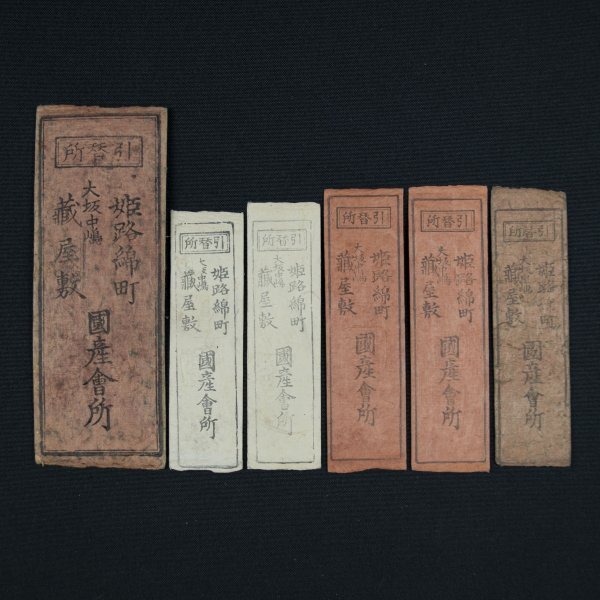 引替所
姫路綿町
大坂中嶋
藏屋敷
國産會所
引替所
姫路綿町
大坂中嶋
藏屋敷
國産會所
引替所
姫路綿町
大坂中嶋
藏屋敷
國産會所
引替所
姫路綿町
大坂中嶋
藏屋敷
國産會所
引替所
姫路綿町
大坂中嶋
藏屋敷
國産會所
引替所
姫路綿町
大坂中嶋
藏屋敷
國産會所